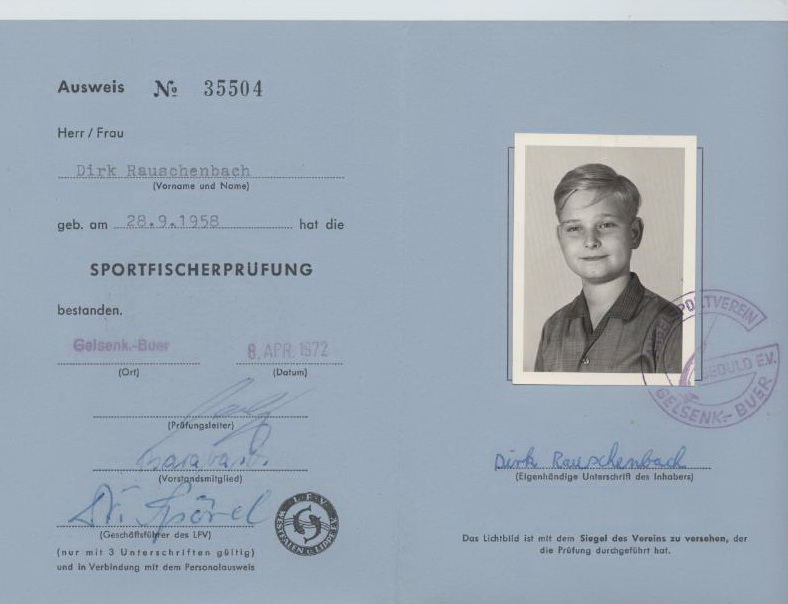 Ausweis № 35504
Herr / Frau
Dirk Rauschenbach
(Vorname und Name)
geb. am 28.9.1958 hat die
SPORTFISCHERPRÜFUNG
bestanden.
Gelsenk.-Buer
8. APR. 1972
(Ort)
(Datum)
(Prüfungsleiter)
(Vorstandsmitglied)
(Geschäftsführer des LFV)
(nur mit 3 Unterschriften gültig)
und in Verbindung mit dem Personalausweis
L.F.V.
WESTFALEN u. LIPPE
SPORTVEREIN
GEDULD E.V.
GELSENK.-BUER
Dirk Rauschenbach
(Eigenhändige Unterschrift des Inhabers)
Das Lichtbild ist mit dem Siegel des Vereins zu versehen, der
die Prüfung durchgeführt hat.